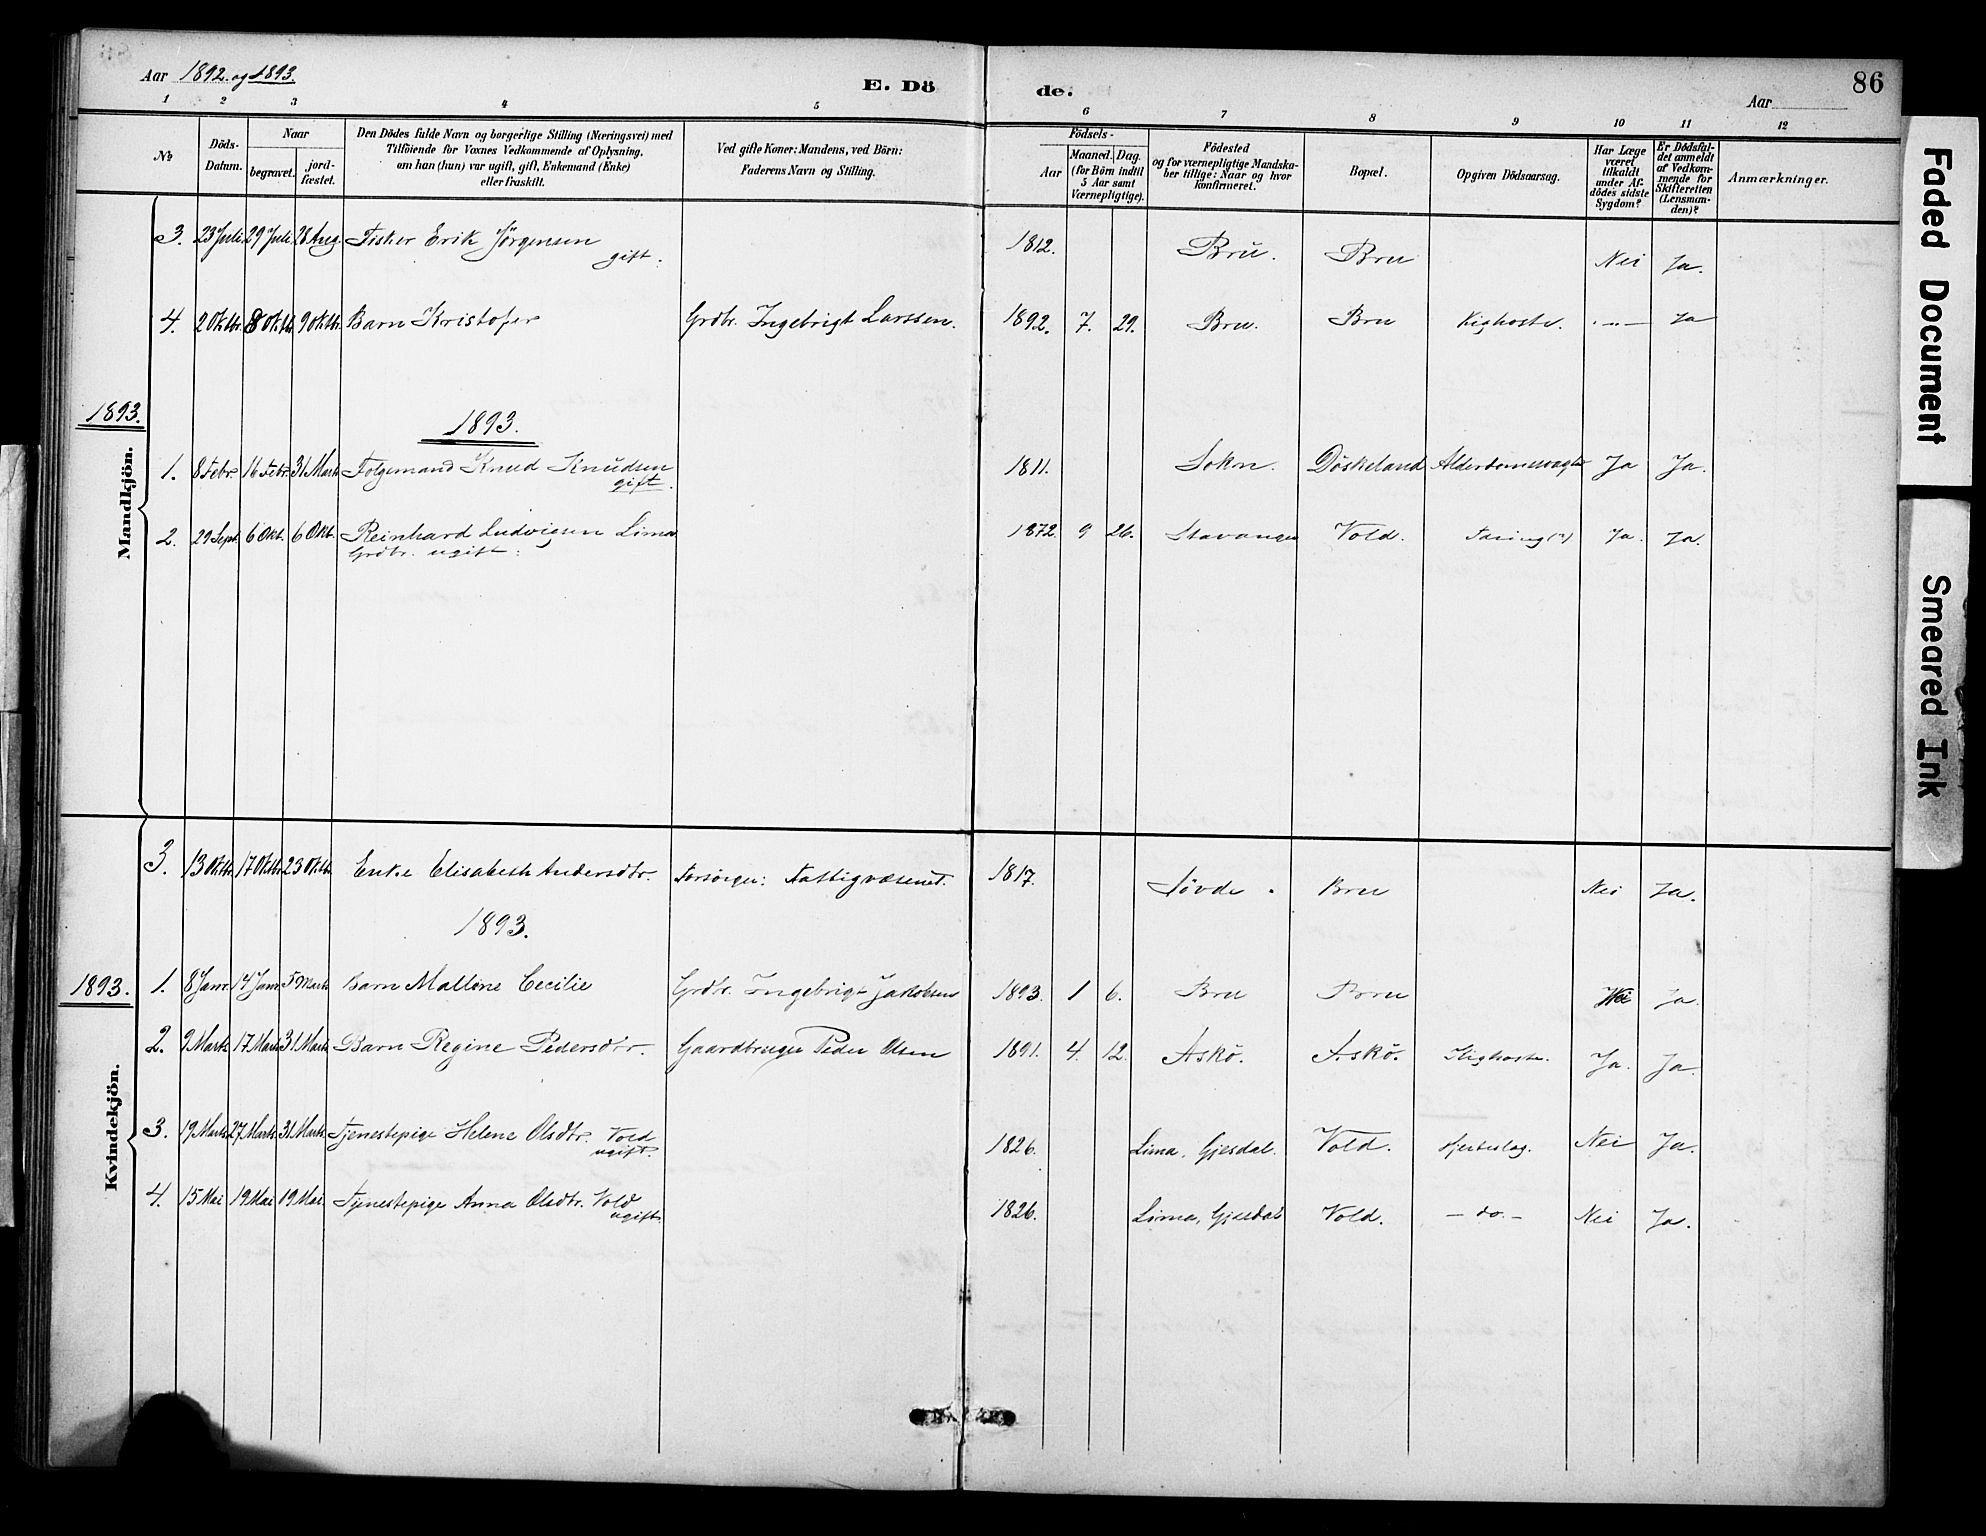 Aar 1892. og 1893.
E. Dö
de.
Aar
86
1 2 3 4 5 6 7 8 9 10 11 12
№
Döds-
Datum.
Naar
begravet.
jord-
fæstet.
Den Dödes fulde Navn og borgerlige Stilling (Næringsvei) med
Tilföiende for Voxnes Vedkommende af Oplysning,
om han (hun) var ugift, gift, Enkemand (Enke)
eller fraskilt.
Ved gifte Koner: Mandens, ved Börn:
Faderens Navn og Stilling.
Födsels-
Aar
Maaned.
Dag.
(for Börn indtil
5 Aar samt
Værnepligtige).
Födested
og for værnepligtige Mandska-
ber tillige: Naar og hvor
konfirmeret.
Bopæl.
Opgiven Dödsaarsag.
Har Læge
været
tilkaldt
under Af-
dödes sidste
Sygdom?
Er Dödsfal-
det anmeldt
af Vedkom-
mende for
Skifteretten
(Lensman-
den)?
Anmærkninger.
3. 23 Juli. 29 Juli. 28 Aug. Fisker Erik Jørgensen 1812. Bru. Bru Nei Ja.
gift.
4. 2 Oktbr. 8 Oktbr. 9 Oktbr. Barn Kristofer Grdbr. Ingebrigt Larssen. 1892. 7. 29. Bru. Bru Kighoste. -"- Ja
1893.
1893.
Mandkjön.
1. 8 Febr. 16 Febr. 31 Marts Folgemand Knud Knudsen 1811. Sokn. Döskeland Alderdomssvaghed Ja Ja.
gift.
2. 29 Sept. 6 Okt. 6 Okt. Reinhard Ludvigsen Lima 1872. 9 26. Stavanger Vold. Tæring (?) Ja. Ja.
Grdbr. ugift.
3. 13 Oktbr. 17 Oktbr. 23 Oktbr. Enke Elisabeth Andersdtr. Forsörger: Fattigvæsenet. 1817. Bru Nei Ja.
1893.
1893.
Kvindekjön.
1. 8 Janr. 14 Janr. 5 Marts Barn Malline Cecilie Grdbr. Ingebrigt Jakobsen 1893. 1 6. Bru Bru Nei Ja.
2. 9 Marts 17 Marts 31 Marts Barn Regine Pedersdtr. Gaardbruger Peder Olsen 1891. 4. 12. Askö. Askö. Kighoste. Ja. Ja.
3. 19 Marts 27 Marts 31 Marts Tjenestepige Helene Olsdtr. Vold 1826. Lima, Gjesdal. Vold. Hjerteslag. Nei Ja.
ugift.
4. 15 Mai 19 Mai 19 Mai. Tjenestepige Anna Olsdtr. Vold 1826. Lima, Gjesdal Vold. - do. - Nei Ja.
ugift.
Faded Document
Smeared Ink